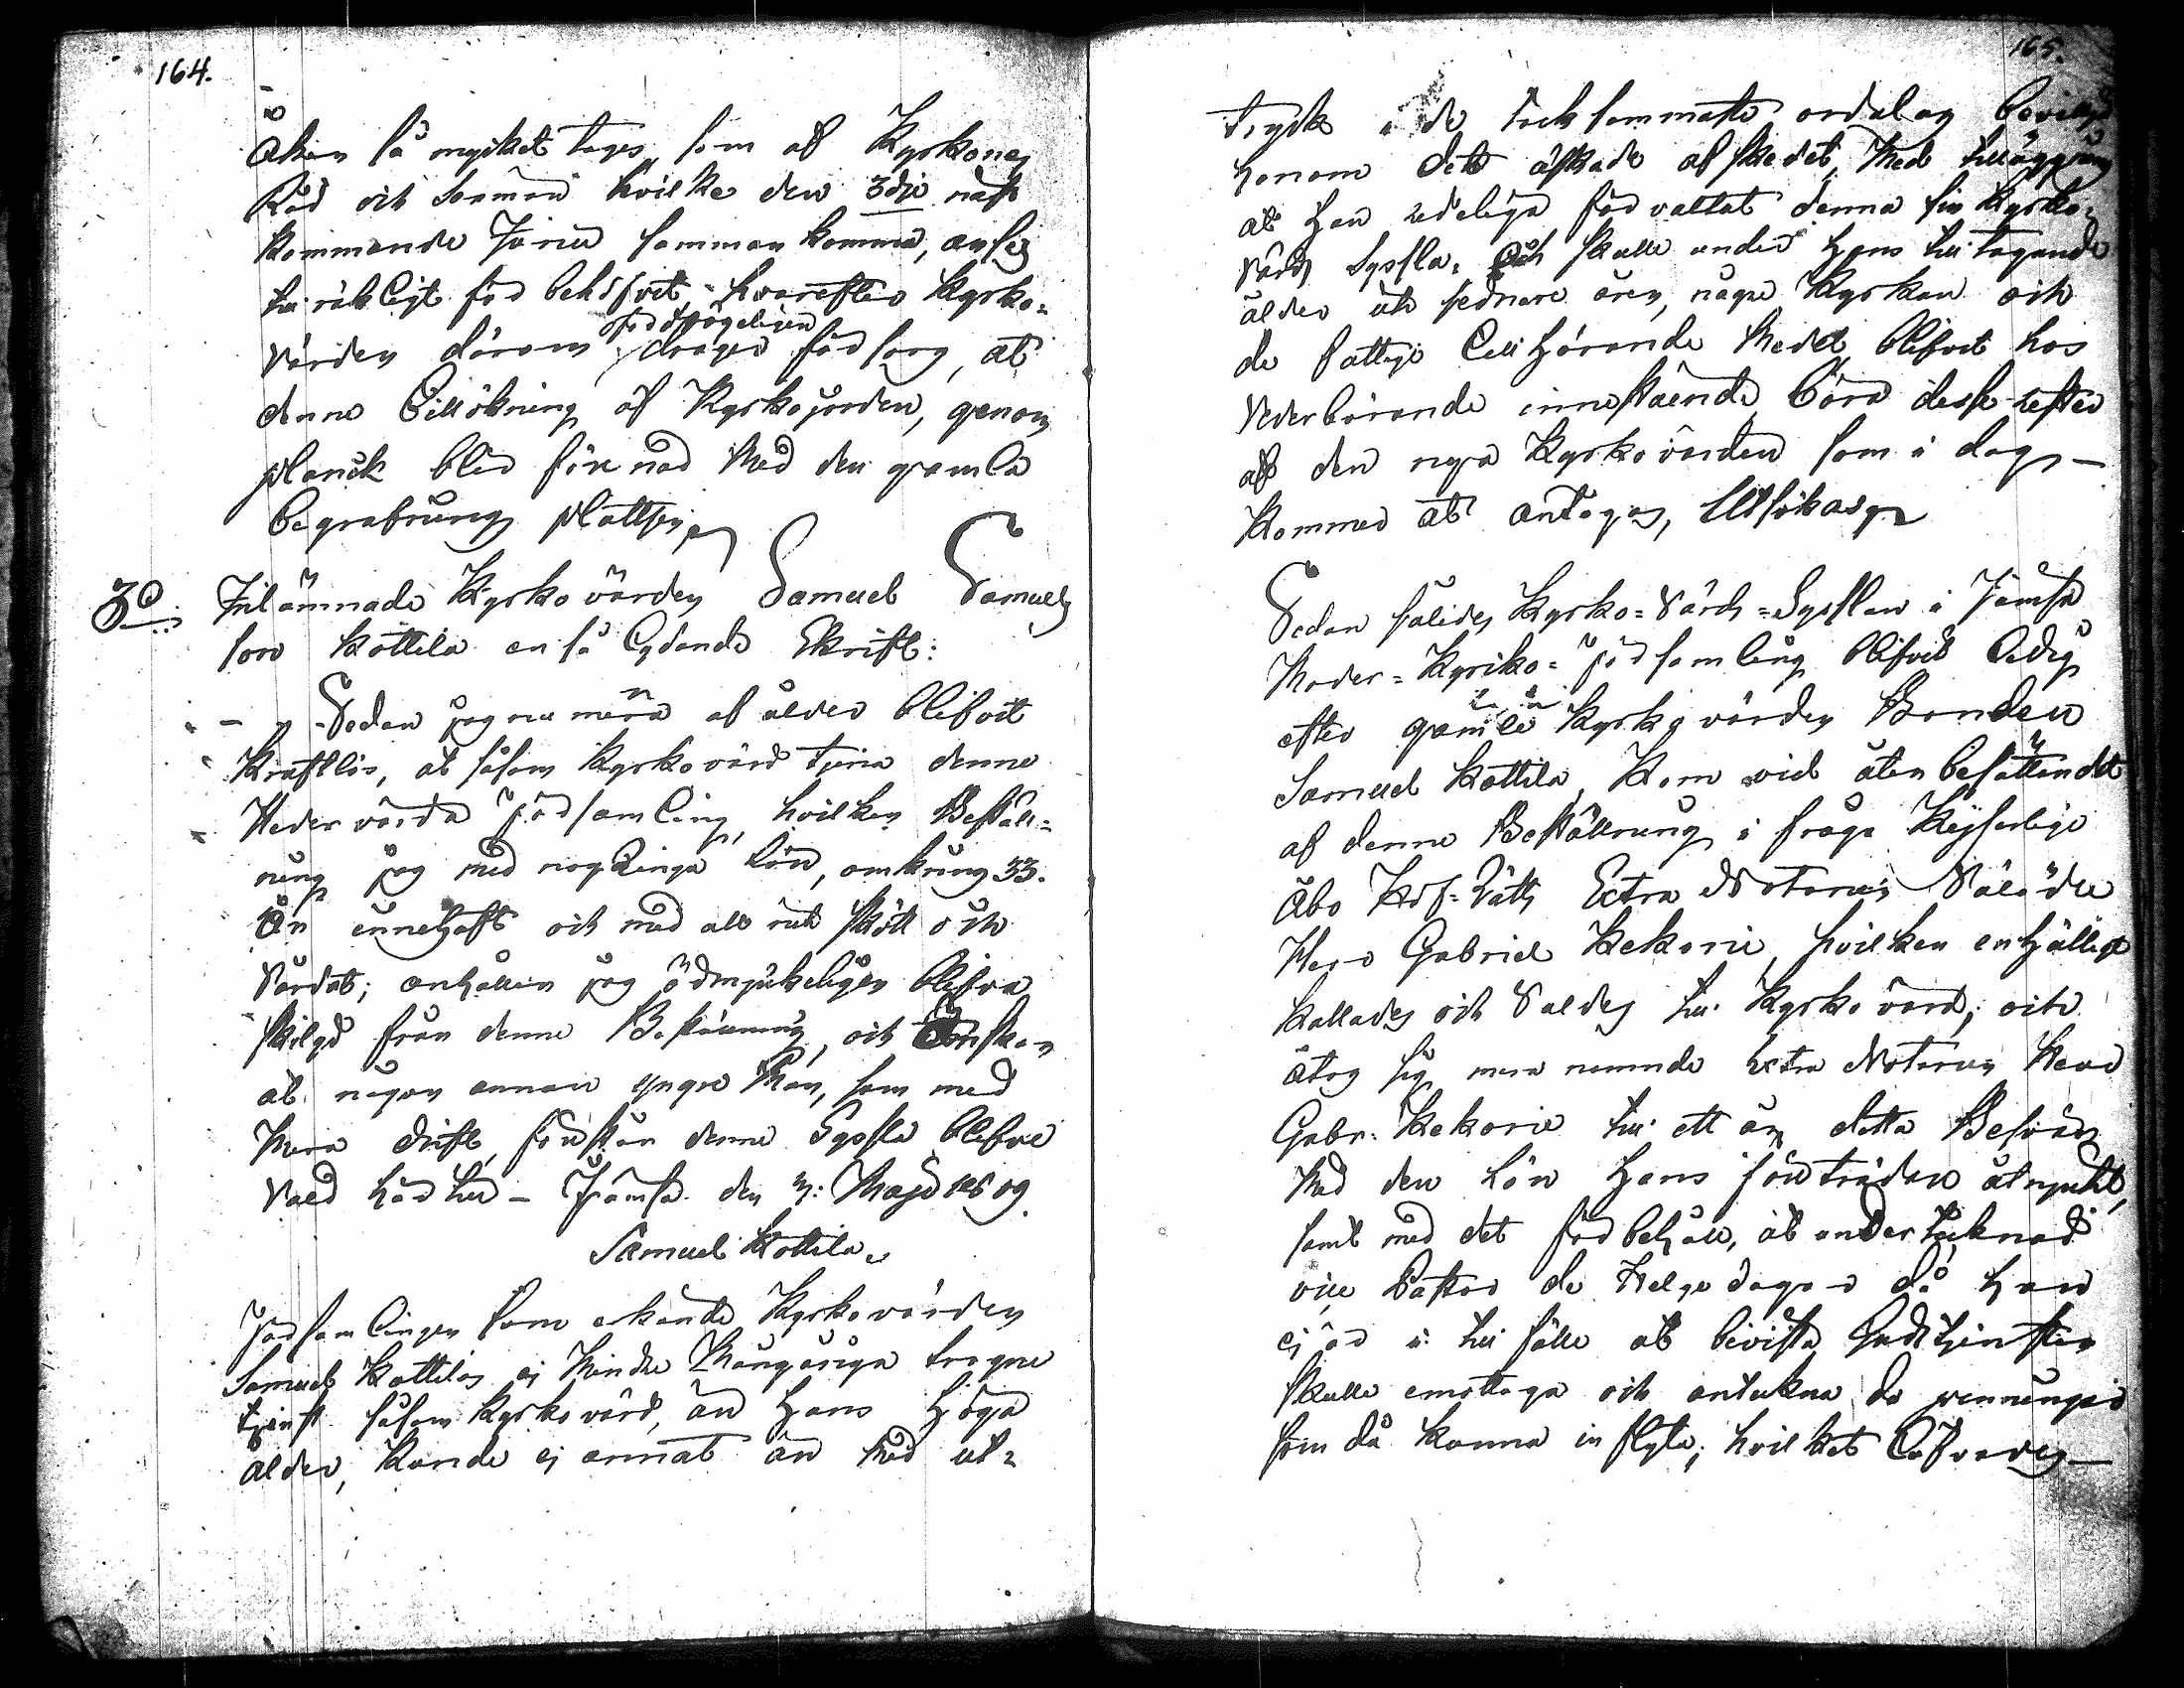 164.
Åker så mycket tages, som af Kyrkones
Råd och Sexmän hvilke den 3die näst
kommande Junii samman komma, anses
tilräkligt för behofvet, hvarefter Kyrko-
Värden därom ofördrögeligen drager försorg, at
denne tillökning af Kyrkojorden, genom
planck blir förenad Med den gamla
begrafnings plattsen
3o Inlämnade Kyrkovärden Samuel Samuels
son Kottila en så lydande Skrift:
Sedan jag nu mera af ålder blifvit
Kraftlös, at såsom Kyrkovärd tjena denne
Hedervärda Församling, hvilken Beställ-
ning jag med nog Ringa Lön, omkring 33.
År innehaft och med all nit skött och
Vårdat; anhåller jag ödmjukeligen blifva
skilgd från denne Beställning, och Önskar
at någon annan yngre Man, som med
Mera drift förestår denne Syssla blefve
Vald härtil - Jämsä den Maji 1809.
Samuel Kottila
Församlingen som erkände Kyrkovärden
Samuel Kottilas ej Mindre Mångåriga trogne
tjenst såsom Kyrkovärd, än Hans Höga
ålder, Kunde ej annat än Med ut-
165.
tryck i de tacksammaste ordalag bevilja
honom dett äskade afskedet, Med tilläggning
at Han redeligen förvaltat denna sin Kyrko-
Värds Syssla. Och skulle under Hans tiltagande
ålder och sednare åren, någre Kyrkan och
de fattige tillhörande Medel, blifvit hos
Vederbörande innestående, böra desse efter
af den nya Kyrkovärden som i dag
Kommer at antagas, Utsökas
Sedan således Kyrko-Värds-Sysslan i Jämsä
Moder-Kyrko-Församling blifvit ledig
efter gamle Kyrkovärden Bonden
Samuel Kottila, Kom vid återbesättandet
af denne Beställning i fråga Kejserlige
Åbo Hof-Rätts Extra Notarien Välädle
Herr Gabriel Kekonie, hvilken enhälligt
Kallades och Valdes til Kyrkovärd; och
åtog sig mera nemnde Extra Notarien Herr
Gabr: Kekonie til ett år detta Besvär
Med den Lön Hans företrädare åtnjutit,
samt med det förbehåll, at undertecknad
vice Pastor de Helge dagar då han
ej är i tilfälle at bevista Gudstjensten
skulle emottaga och anteckna de penningar
som då kunna inflyta; hvilket lofvades